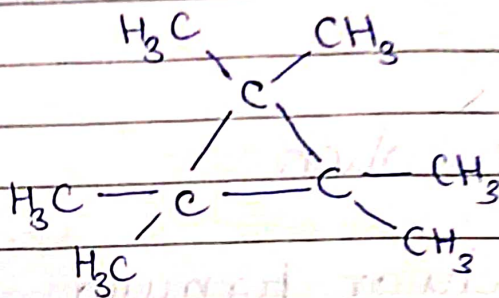 H₃C CH₃
C
H₃C C C CH₃
H₃C CH₃